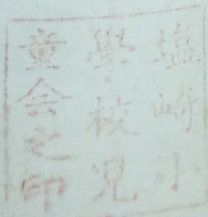 塩崎小
學校児
童会之印